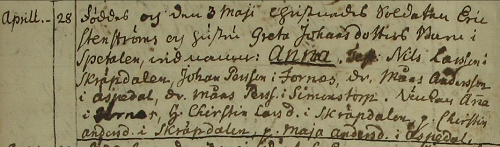 Aprill. 28 Föddes og den 3 Maji christnades Soldatens Eric
Stenströms og hustru Greta Johans dotters Barn i
Spetalen, vid namn: Anna. Test: Nils Larsson i
Skräpdalen, Johan Persson i Fornås, dr. Måns Andersson
i Aspedal, dr. Måns Perss. i Simonstorp.
i Fornås, H. Chierstin Larsd. i Skräpdalen, p. Chierstin
andersd. i Skräpdalen, p. Maja andersd. i Aspedal.